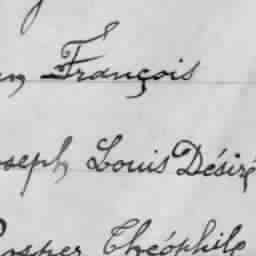 François
Joseph Louis Désiré
Prosper Théophile